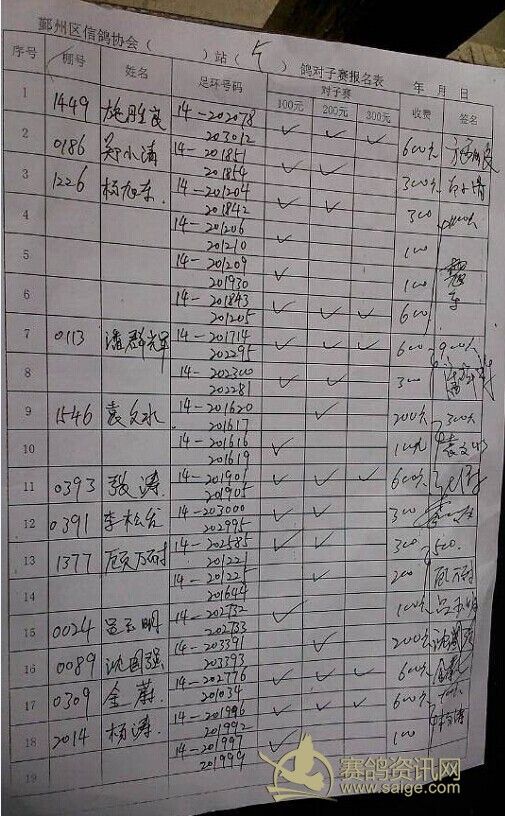 鄞州区信鸽协会（ ）站（ ）鸽对子赛报名表 年 月 日
序号 棚号 姓名 足环号码 对子赛 收费 签名
100元 200元 300元
1 1449 施胜良 14-202078 ✓ ✓ ✓ 600元
203012
2 0186 郑小清 14-201851 ✓ ✓ 300元
201854
3 1226 杨旭东 14-201204 ✓ ✓ 300
201842
4 14-201206 ✓ 100
201210
5 14-201209 ✓ 100
201930
6 14-201843 ✓ ✓ ✓ 600
201205
7 0113 潘群辉 14-201714 ✓ ✓ ✓ 600
202295
8 14-202300 ✓ ✓ 300
202281
9 1546 袁文水 14-201620 ✓ 200元 300元
201617
10 14-201616 ✓ 100元 袁文水
201619
11 0393 张涛 14-201901 ✓ ✓ ✓ 600元
201905
12 0391 李松台 14-203000 ✓ ✓ 300
202995
13 1377 14-202585 ✓ ✓ 300 500
201221
14 14-201225 ✓ 200
201644
15 0024 吕玉明 14-202732 ✓ 100元 吕玉明
202733
16 0089 沈国强 14-203391 ✓ 200元 沈国强
203393
17 0309 金蔚 14-202776 ✓ ✓ ✓ 600元 金蔚
201034
18 2014 杨涛 14-201996 ✓ ✓ ✓ 600元 杨涛
201992
14-201997 ✓ 100
201999
19
赛鸽资讯网
www.saige.com